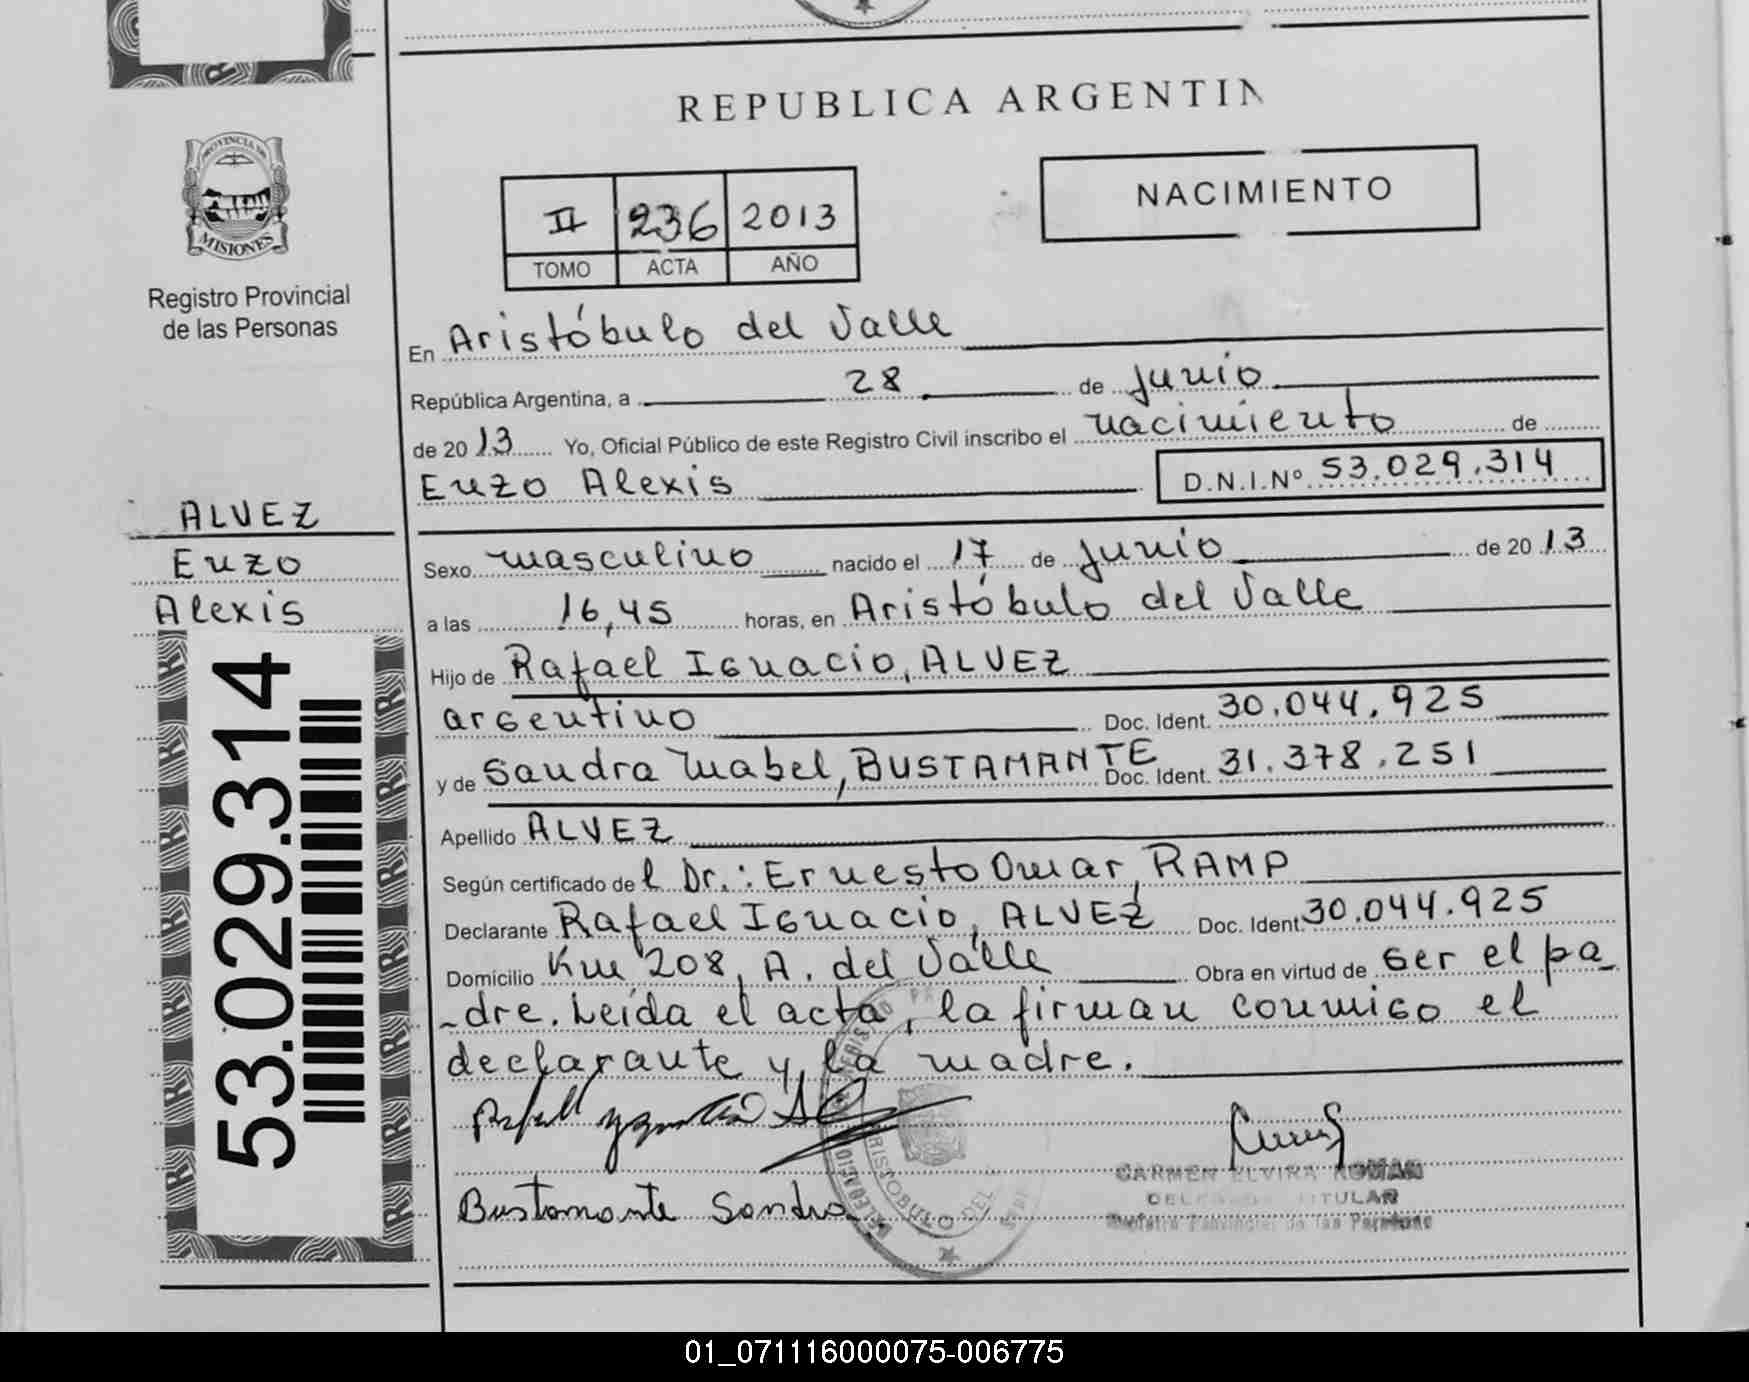 REPUBLICA ARGENTIN
PROVINCIA DE
MISIONES
Registro Provincial
de las Personas
II 236 2013
TOMO ACTA AÑO
NACIMIENTO
En Aristóbulo del Valle
República Argentina, a 28 de Junio
de 2013 Yo, Oficial Público de este Registro Civil inscribo el nacimiento de
Enzo Alexis D.N.I.Nº 53.029.314
ALVEZ
Enzo
Alexis
53.029.314
Sexo masculino nacido el 17 de Junio de 2013
a las 16,45 horas, en Aristóbulo del Valle
Hijo de Rafael Ignacio, ALVEZ
argentino Doc. Ident. 30.044.925
y de Sandra Mabel, BUSTAMANTE Doc. Ident. 31.378.251
Apellido ALVEZ
Según certificado del Dr.: Ernesto Omar, RAMP
Declarante Rafael Ignacio, ALVEZ Doc. Ident. 30.044.925
Domicilio Km 208, A. del Valle Obra en virtud de ser el pa_
_dre. Leída el acta, la firman conmigo el
declarante y la madre.
Bustamante Sandra
CARMEN ELVIRA ROMAN
TITULAR
Registro Provincial de las Personas
01_071116000075-006775